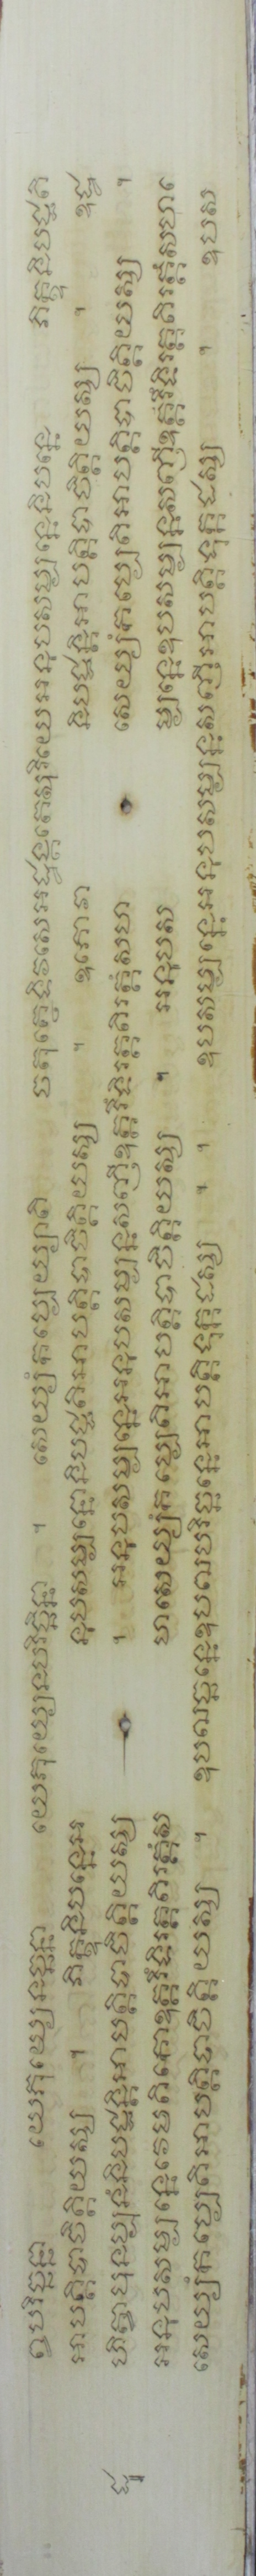 ឰបរិច្ឆន្នា យេភុយ្យេនច្ឆន្នា យេភុយ្យេនបរិច្ឆិន្នា ។ សេយ្យំកប្បេយ្យាតិ ចតុត្ថេទិវសេអដ្ឋង្គតេសុរិយេអនុបសម្បន្នេនិបន្នេ ភិក្ខុនិបជ្ជតិ
អាបត្តិបាចិត្តិយស្ស ។ ភិក្ខុនិបន្នេអ នុបសម្បន្នោនិបជ្ជតិអាបត្តិបាចិត្តិយស្ស ។ ឧភោវា និបជ្ជន្តិអាបត្តិបាចិត្តិយស្ស ។ ឧដ្ឋ
ហិត្វាបុនប្បុនំនិបជ្ជន្តិអាបត្តិបាចិត្តិយស្ស ។ អនុបសម្បន្នេអនុបសម្បន្នសញីឧត្តរឹទិរត្តតិរត្តំសហ សេយ្យំកប្បេតិអាបត្តិបាចិត្តិយស្ស ។
អនុបសម្បន្នេវេមតិកោឧត្តរឹទិរត្តតិរត្តំស ហសេយ្យំកប្បេតិអាបត្តិបាចិត្តិយស្ស ។ អនុបស ម្បន្នេឧបសម្បន្នសញីឧត្តរឹទិរត្តតិរត្តំសហ
សេយ្យំកប្បេតិអាបត្តិបាចិត្តិយស្ស ។ ឧបឍច្ឆន្នេឧបឍបរិច្ឆន្នេអាបត្តិទុក្កដស្ស ។ ។ ឧបសម្បន្នេអនុបសម្បន្នសញីអាបត្តិទុក្កដស្ស ។ ឧបស